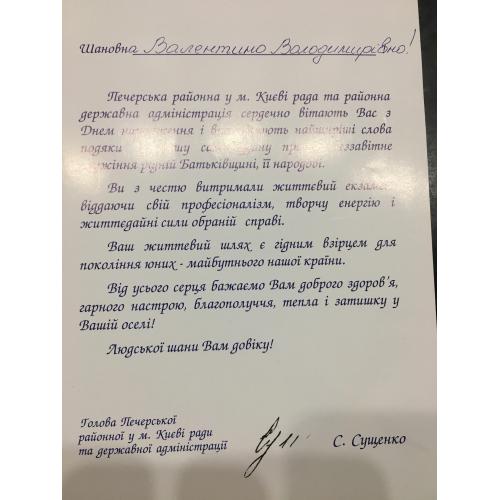 Шановна Валентино Володимирівно!
Печерська районна у м. Києві рада та районна
державна адміністрація сердечно вітають Вас з
Днем народження і найщиріші слова
подяки
служіння рідній Батьківщині, її народові.
Ви з честю витримали життєвий екзамен,
віддаючи свій професіоналізм, творчу енергію і
життєдайні сили обраній справі.
Ваш життєвий шлях є гідним взірцем для
покоління юних - майбутнього нашої країни.
Від усього серця бажаємо Вам доброго здоров'я,
гарного настрою, благополуччя, тепла і затишку у
Вашій оселі!
Людської шани Вам довіку!
Голова Печерської
районної у м. Києві ради
та державної адміністрації
С. Сущенко